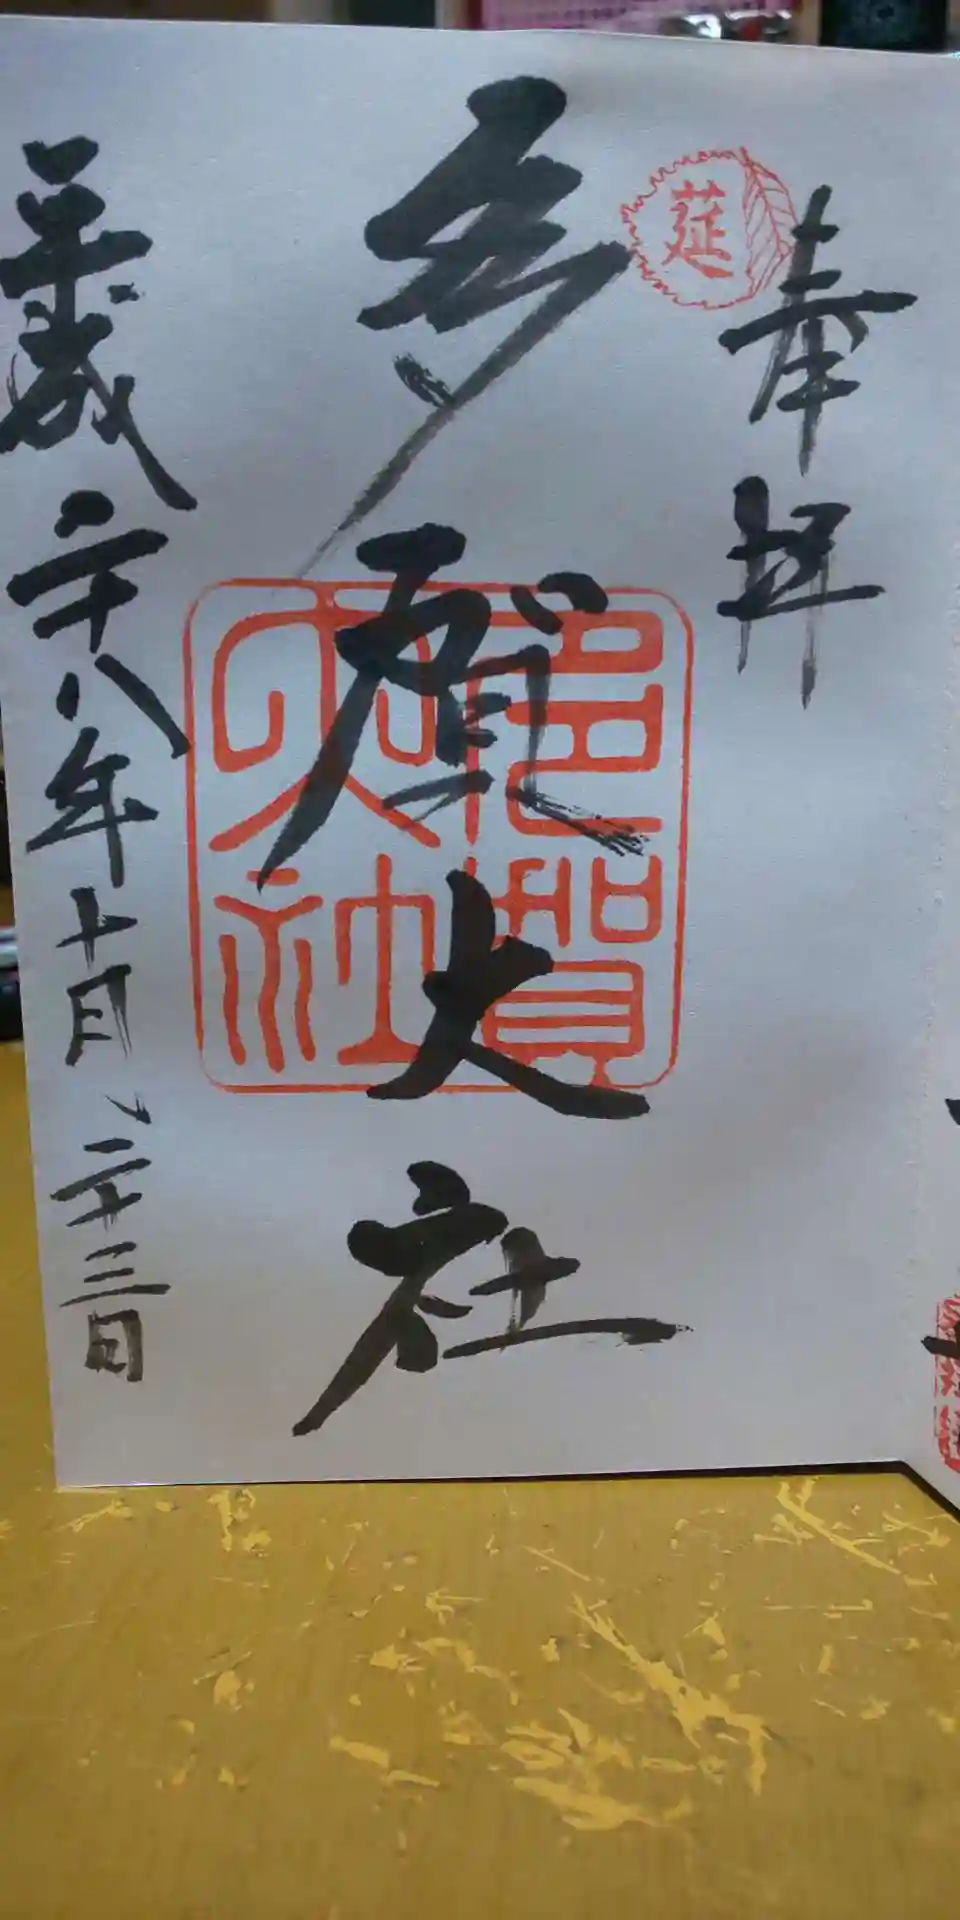 奉拝
莚
多賀大社
多賀大社
平成二十八年十月二十三日